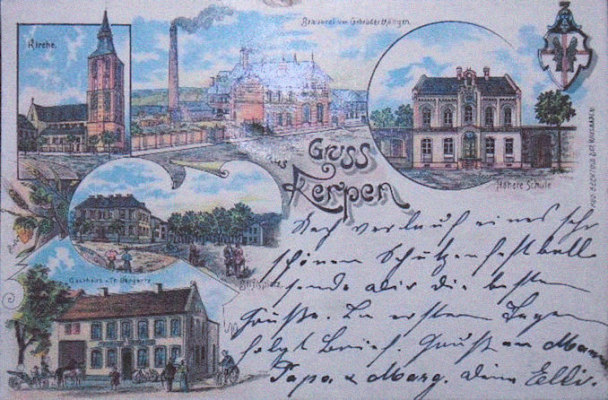 Kirche.
Brauerei von Gebrüder
Gruss
aus
Kerpen
Höhere Schule
Gasthaus v.
Nach verlauf eines sehr
schönen Schützenfestballe
sende Dir die besten
Grüße. In ersten Tagen
folgt Brief. Gruß an Mama
Papa & Marg. Deine Elli.